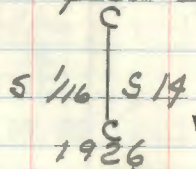 C
S 1/16 S 14
C
1926